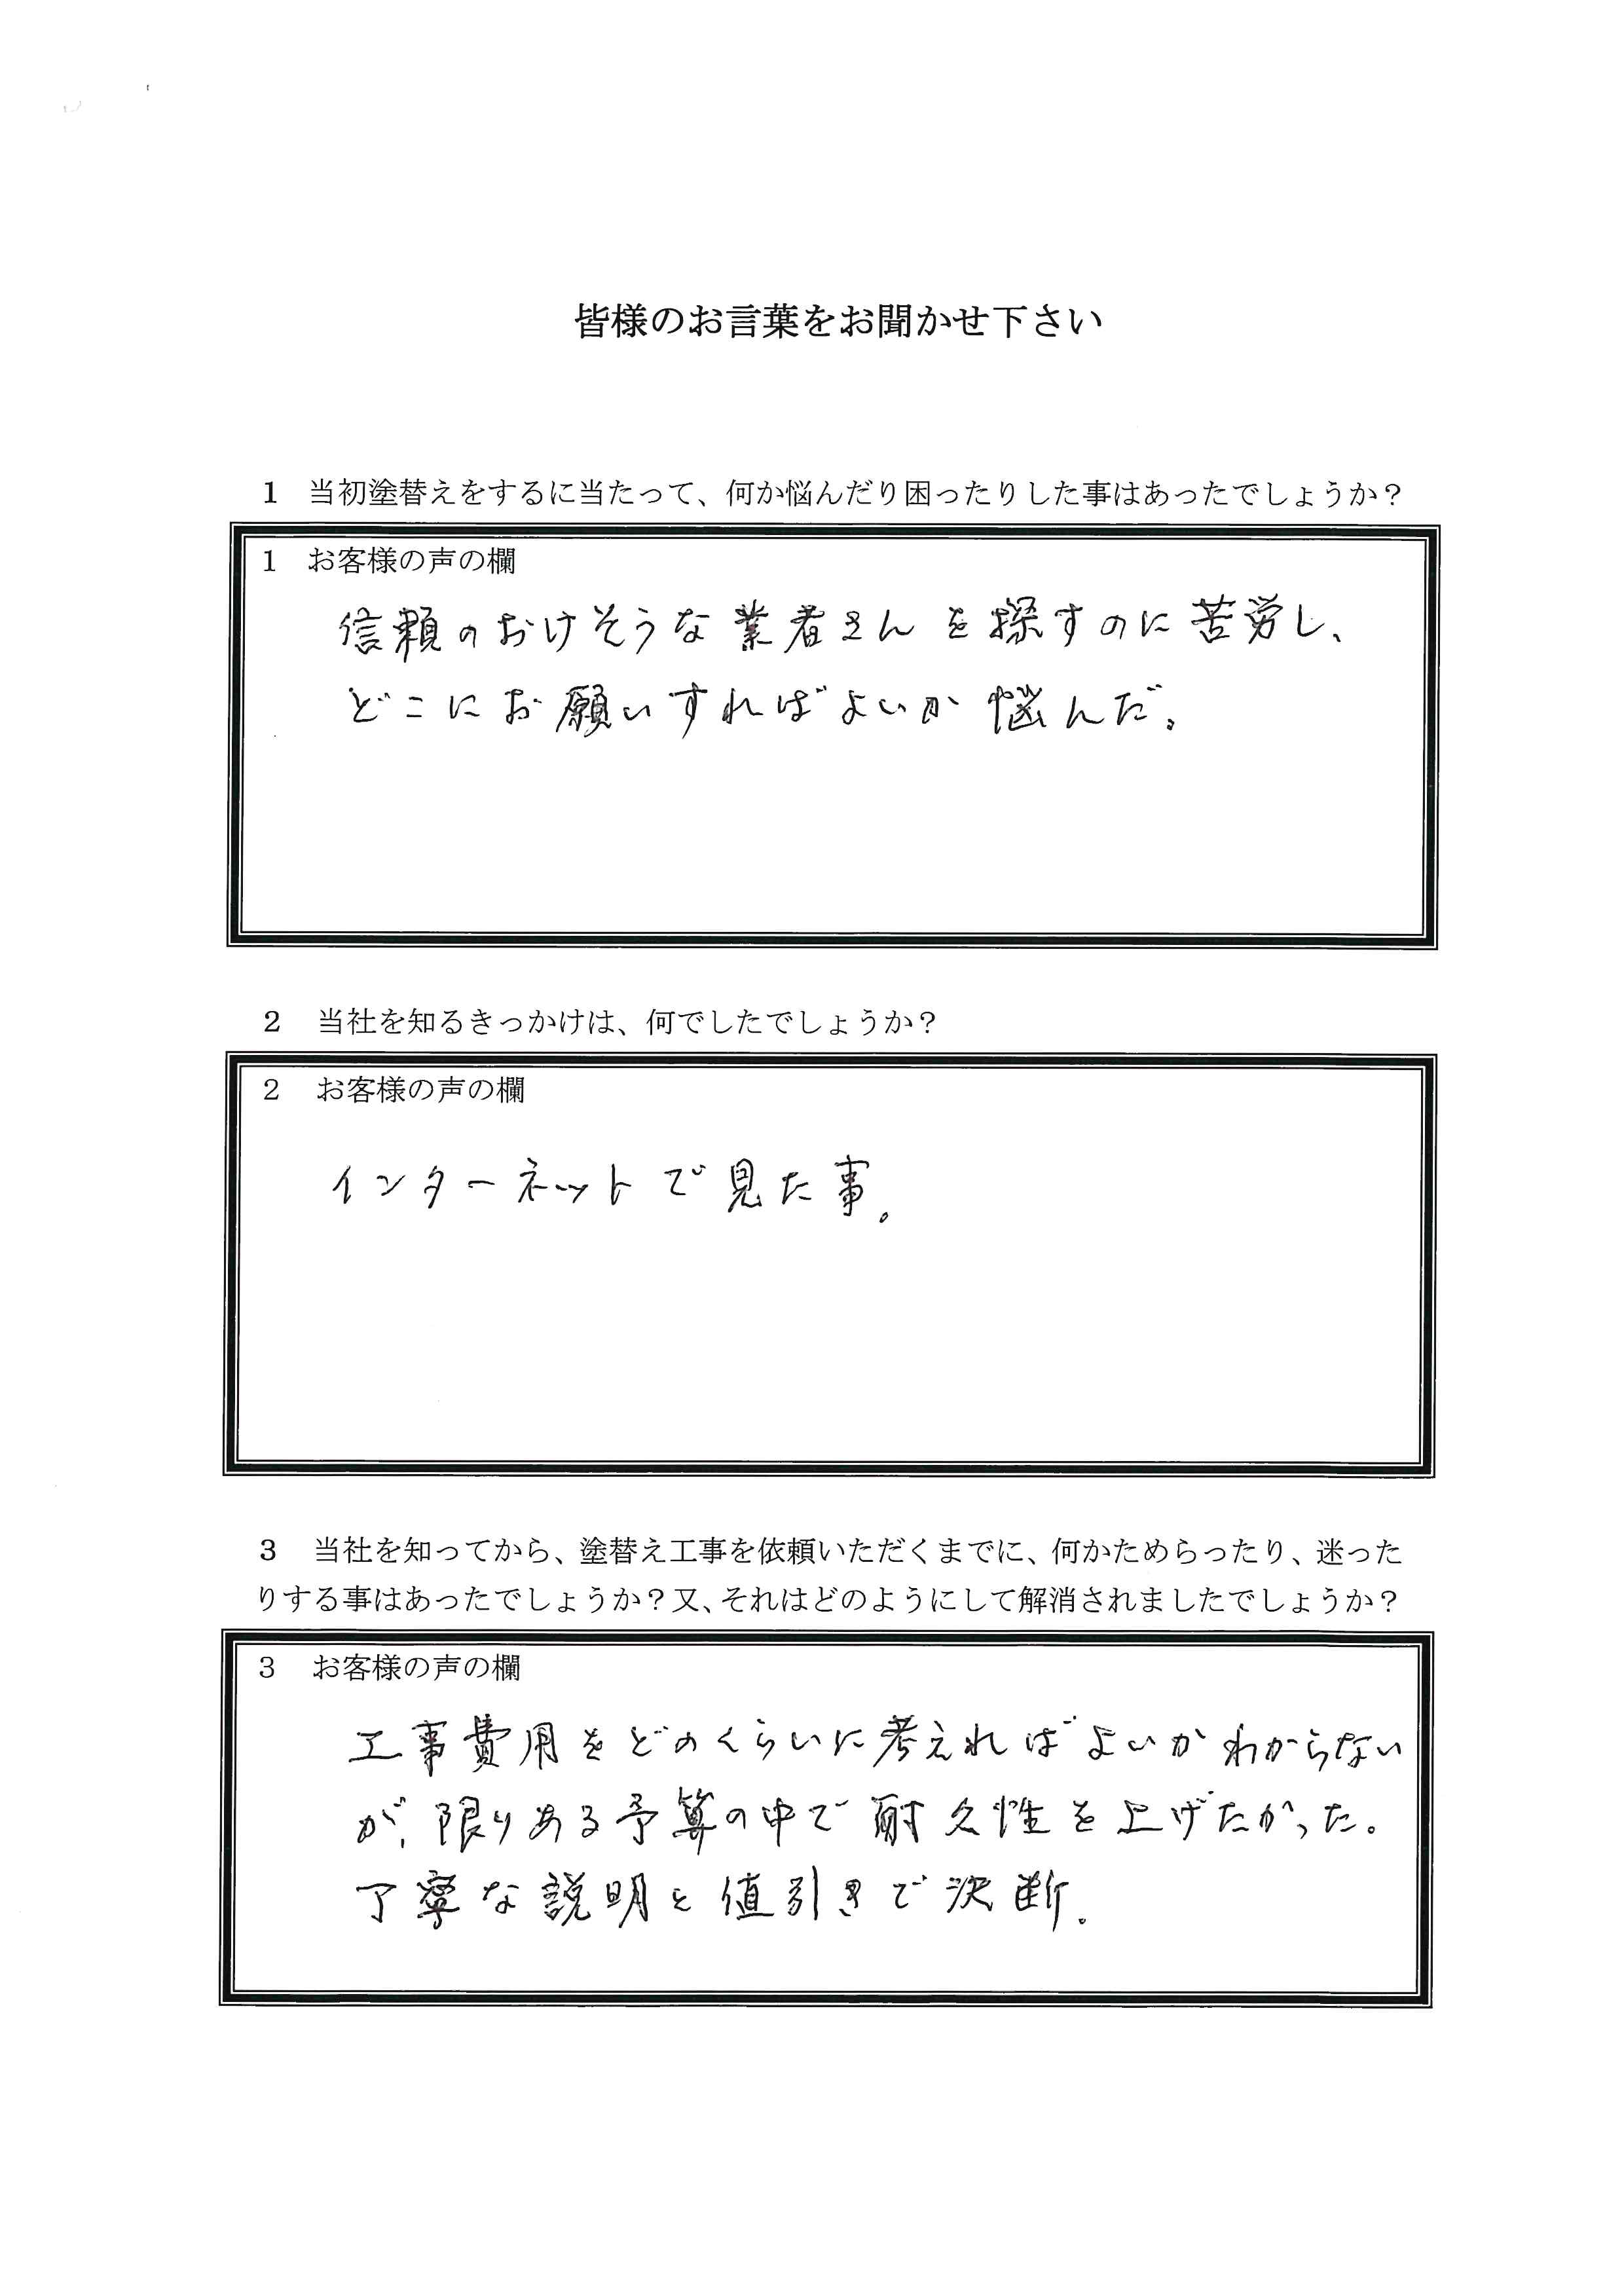 皆様のお言葉をお聞かせ下さい
1 当初塗替えをするに当たって、何か悩んだり困ったりした事はあったでしょうか？
1 お客様の声の欄
信頼のおけそうな業者さんを探すのに苦労し、
どこにお願いすればよいか悩んだ。
2 当社を知るきっかけは、何でしたでしょうか？
2 お客様の声の欄
インターネットで見た事。
3 当社を知ってから、塗替え工事を依頼いただくまでに、何かためらったり、迷った
りする事はあったでしょうか？又、それはどのようにして解消されましたでしょうか？
3 お客様の声の欄
工事費用をどのくらいに考えればよいかわからない
が、限りある予算の中で耐久性を上げたかった。
丁寧な説明と値引きで決断。